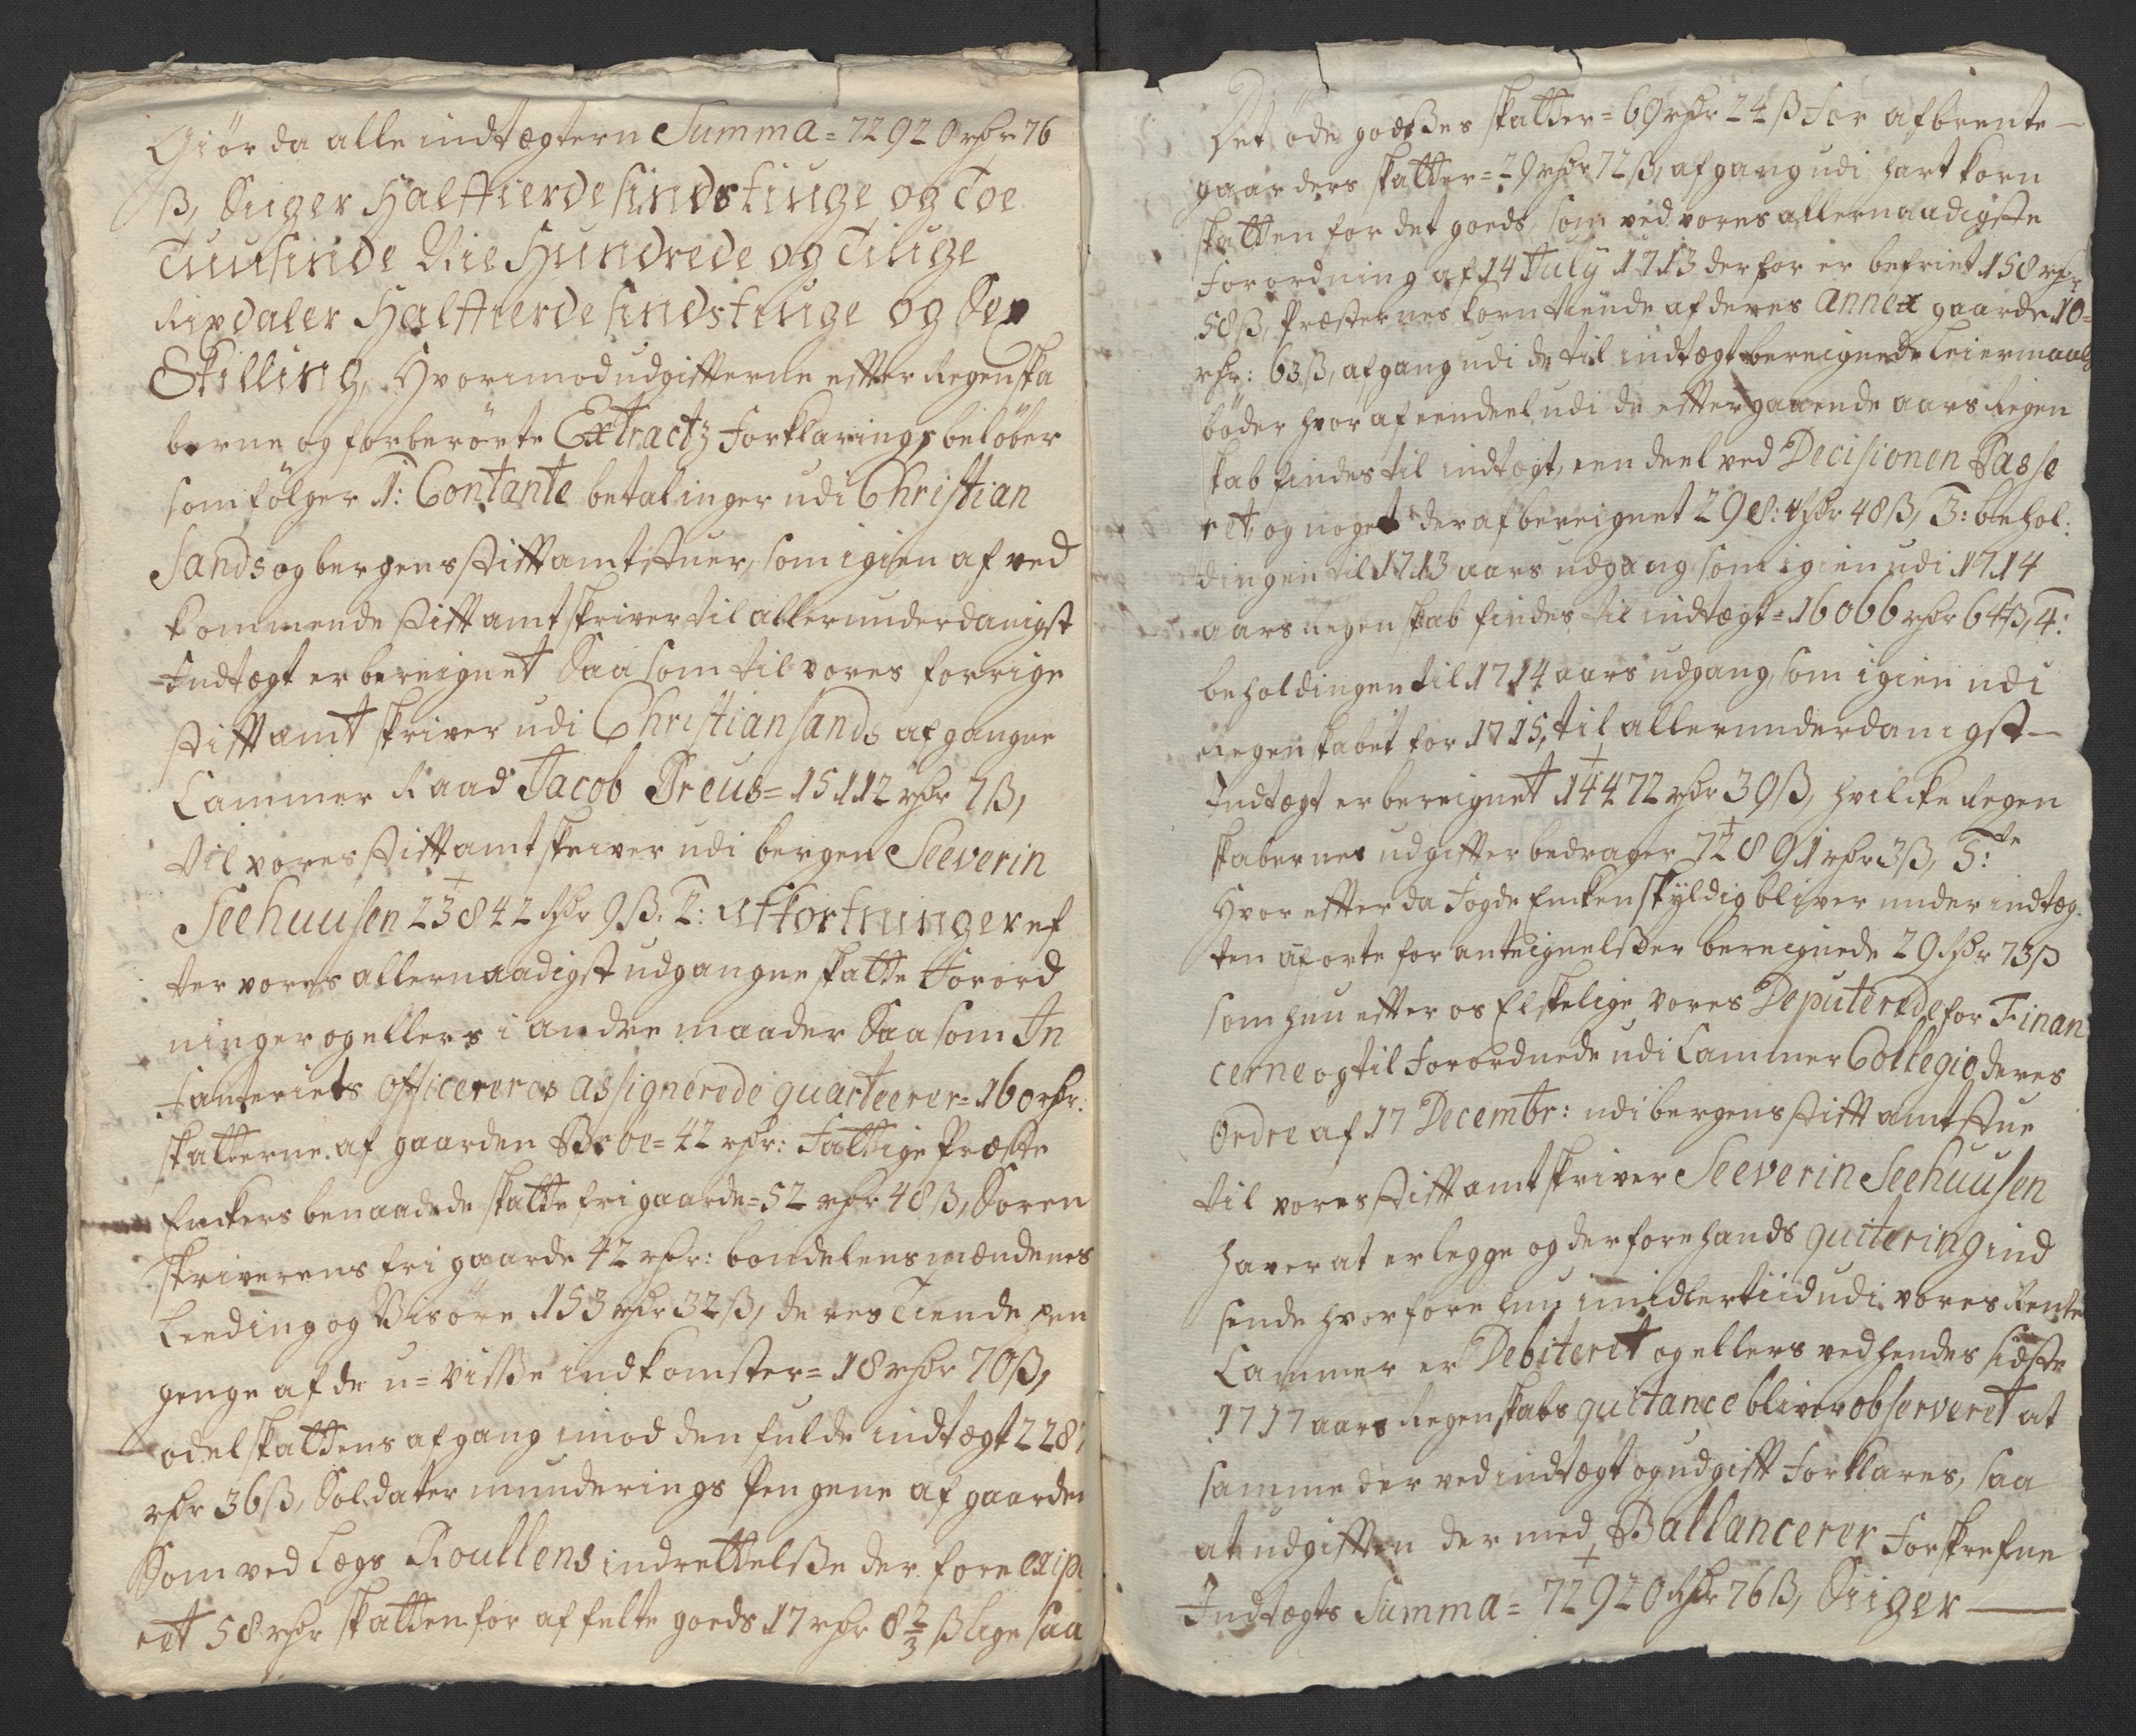 Giör da alle indtægtern Summa = 72920 rhdr 76
ß, Siiger Halffierdesindstiuge og Toe
Tuusinde Nie Hundrede og Tiuge
Rixdaler Halffierdesindstiuge og Sex
Skilling, Hvorimod udgifterne efter Regenska
berne og forberörte Extractz Forklarings belöber
som fölger 1: Contante betalinger udi Christian
Sands og bergens Stiftamtstuer, som igien af ved
kommende Stiftamtskriver til allerunderdanigst
Indtægt er bereignet Saasom til vores forrige
Stiftamtskriver udi Christiansands afgangne
Cammer Raad Jacob Dreus = 15112 rhdr 7ß,
til vores Stiftamtskriver udi bergen Seeverin
Seehuusen 23842 rhdr 9ß. 2: Afkortninger ef
ter vores allernaadigst udgangne skatte Forord
ninger og ellers i andre maader Saasom In
Fanteriets officereres assignerede quarteerer = 160 rhr:
skatterne af gaarden Broe = 42 rhr: Fattige Præste
Enckers benaadede skatte fri gaarde = 52 rhdr 48ß, Soren
skriverens fri gaarde 42 rhr: bondelensmændenes
Leeding og Visöre 153 rhdr 32ß, deres Tiende pen
genge af de u=visse indkomster = 18 rhdr 70ß,
odelskattens afgang imod den fulde indtægt 2287
rhdr 36ß, Soldater munderings Pengene af gaarden
Som ved Lægs Roullens indrettelsse derfore exipe
ret 58 rhdr skatten for affelte goeds 17 rhdr 8 2/3 ß lige saa
Det öde godsses skatter = 69 rhdr 24 ß For afbrente
gaarders skatter = 29 rhdr 72ß, afgang udi hartkorn
skatten for det goeds, som ved vores allernaadigste
Forordning af 14 July 1713 derfor er befriet 158 rhr
58ß, Præsternes korn tiende af deres annex gaarde 10=
rhr: 63ß, afgang udi de til indtægt bereignede leiermaals
böder hvoraf eendeel udi de efter gaaende aars Regen
skab findes til indtægt, een deel ved Decisionen Passe
ret, og noget deraf bereignet 298: rhdr 48ß, 3: behol:
dingen til 1713 aars udgang som igien udi 1714
aars regenskab findes til indtægt = 16066 rhdr 64ß, 4:
beholdingen til 1714 aars udgang, som igien udi
Regenskabet for 1715, til allerunderdanigst
Indtægt er bereignet 14472 rhdr 39ß, hvilcke Regen
skabernes udgifter bedrager 72891 rhdr 3ß, 5:te
Hvorefter da Fogde Encken skyldig bliver under indtæg
ten aforte for anteignelsser bereignede 29 rhdr 73ß
som hun efter os Elskelige vores Deputerede for Finan
cerne og til Forordnede udi Cammer Collegio deres
Ordre af 17 Decembr: udi bergens Stiftamtstue
til vores Stiftamtskriver Seeverin Seehuusen
haver at erlegge og derfore hands quitering ind
sende hvorfore hun imidlertiid udi vores Rente
Cammer er Debiteret og ellers ved hendes sidste
1717 aars Regenskabs quitance bliver observeret at
samme der ved indtægt og udgift Forklares, saa
at udgiften der med Ballancerer Forskrefne
Indtægts Summa = 72920 rhdr 76ß, Siiger